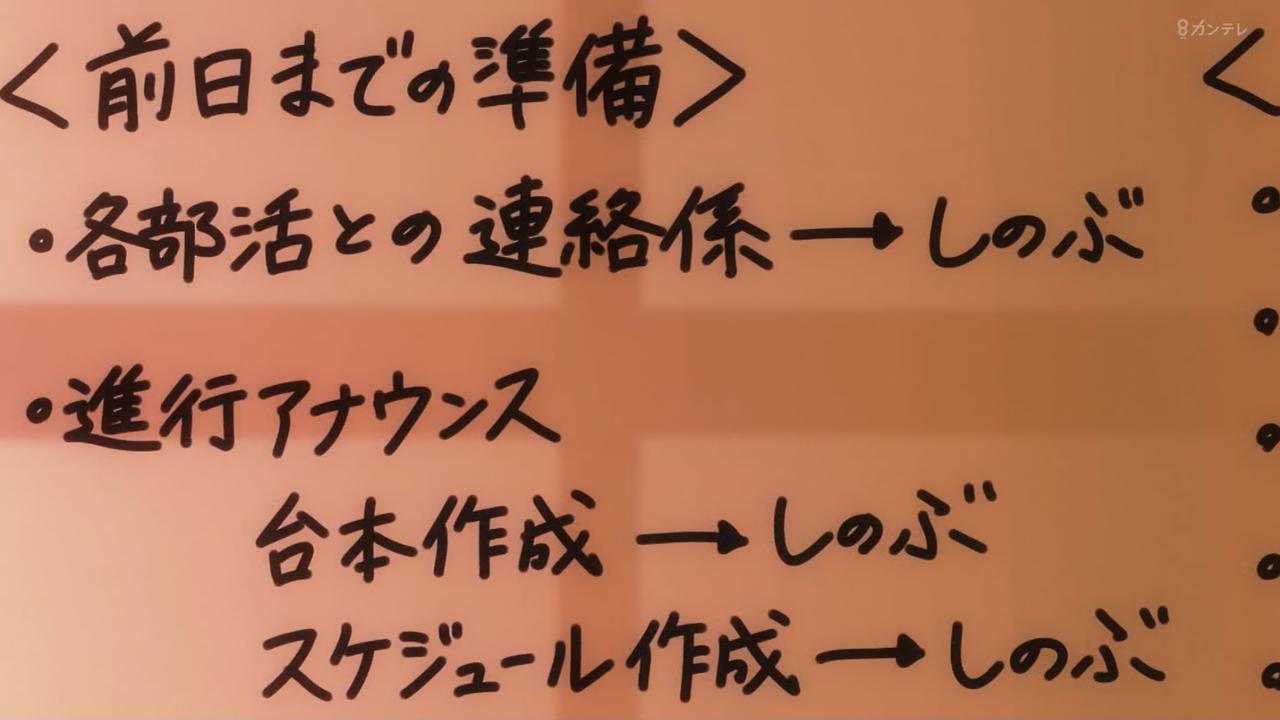 8カンテレ
<前日までの準備>
・各部活との連絡係→しのぶ
・進行アナウンス
台本作成→しのぶ
スケジュール作成→しのぶ